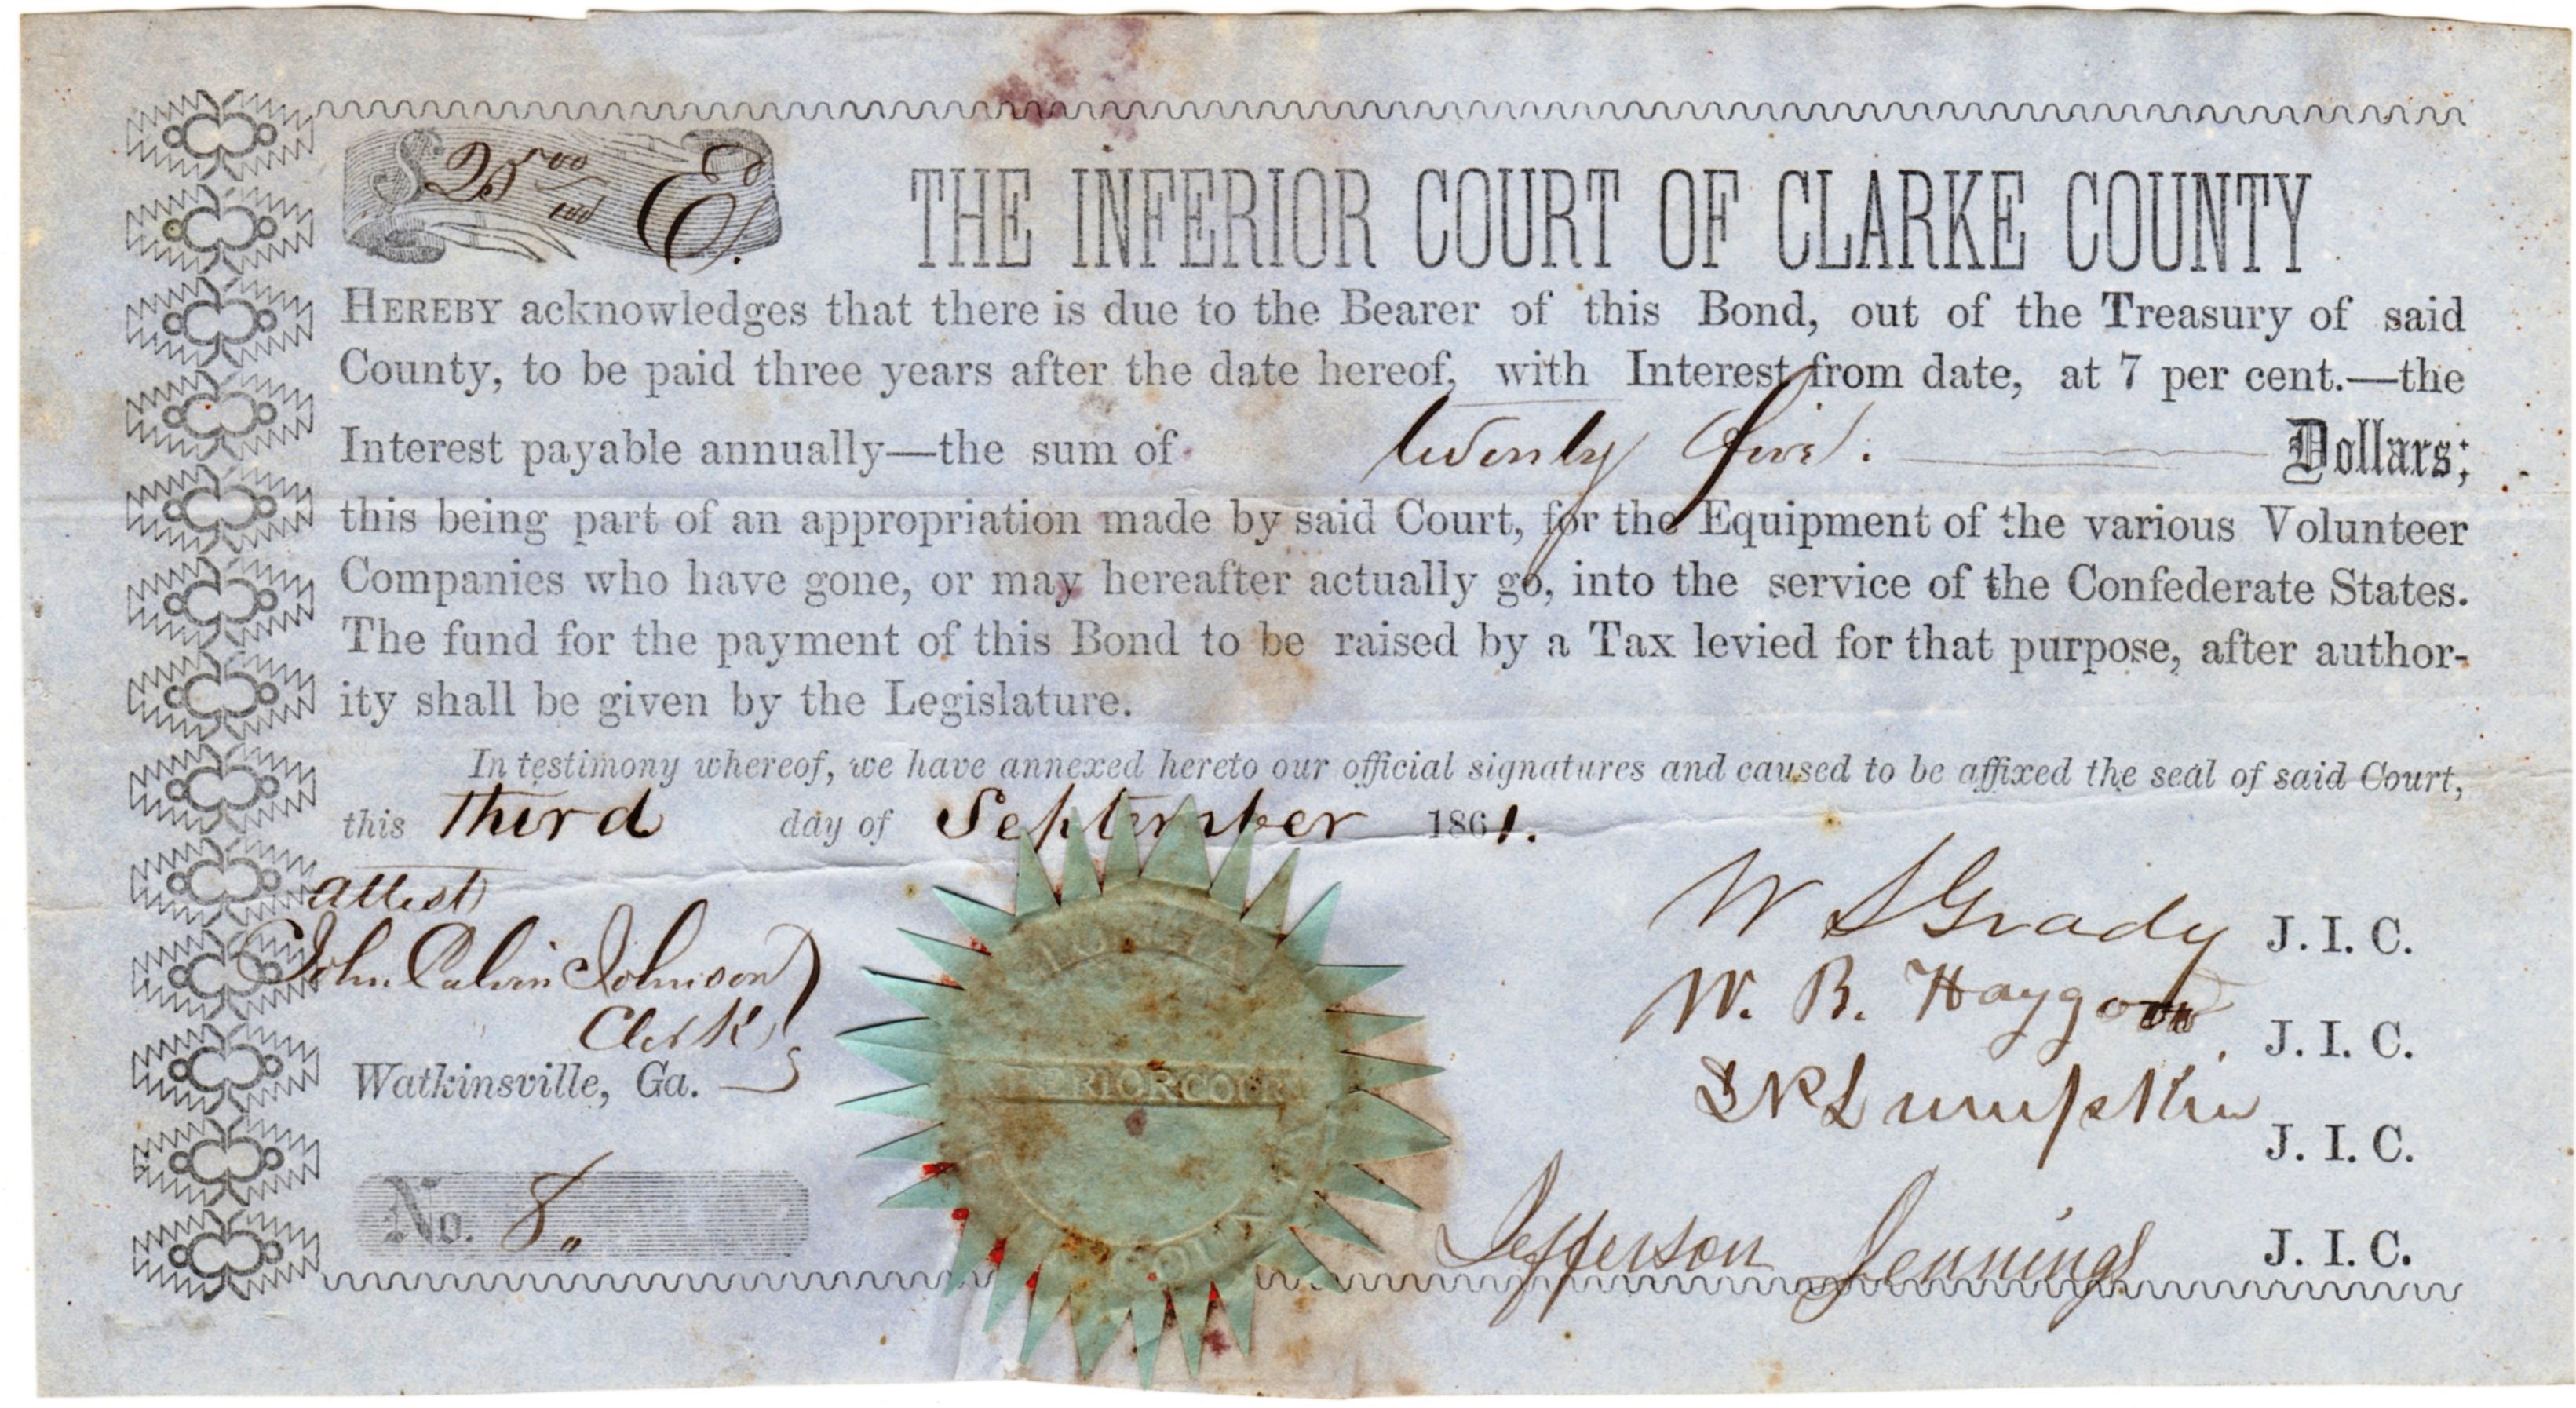 $25 00/100 E.
THE INFERIOR COURT OF CLARKE COUNTY
HEREBY acknowledges that there is due to the Bearer of this Bond, out of the Treasury of said
County, to be paid three years after the date hereof, with Interest from date, at 7 per cent.—the
Interest payable annually—the sum of twenty five. Dollars;
this being part of an appropriation made by said Court, for the Equipment of the various Volunteer
Companies who have gone, or may hereafter actually go, into the service of the Confederate States.
The fund for the payment of this Bond to be raised by a Tax levied for that purpose, after author-
ity shall be given by the Legislature.
In testimony whereof, we have annexed hereto our official signatures and caused to be affixed the seal of said Court,
this Third day of September 1861.
attest
John Calvin Johnson
Clerk
Watkinsville, Ga.
No. 8
W S Grady J. I. C.
W. B. Haygood J. I. C.
Lumpkin J. I. C.
Jefferson Jennings J. I. C.
ERIOR COUR